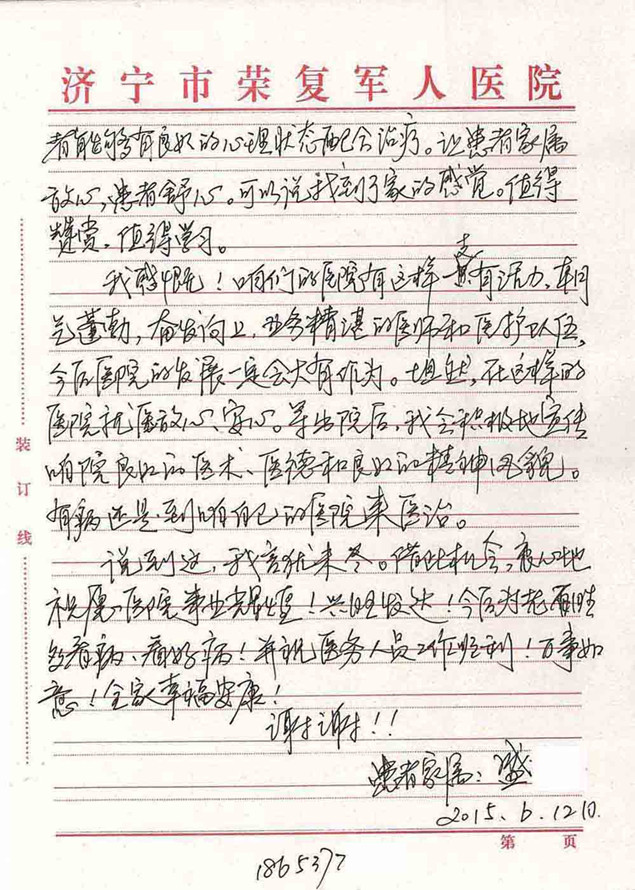 济宁市荣复军人医院
者能够有良好的心理状态配合治疗。让患者家属
放心,患者舒心。可以说找到了家的感觉。值得
赞赏,值得学习。
我感慨!咱们的医院有这样一支具有活力,朝
气蓬勃,奋发向上,业务精湛的医师和医护队伍,
今后医院的发展一定会大有作为。坦然,在这样的
医院就医放心、安心。等出院后,我会积极地宣传
咱院良好的医术、医德和良好的精神风貌。
有病还是到咱自己的医院来医治。
说到这,我言犹未尽。借此机会,衷心地
祝愿医院事业辉煌!兴旺发达!今后为老百姓
看病、看好病!并祝医务人员工作顺利!百事如
意!全家幸福安康!
谢谢!!
患者家属:盛
2015.6.12日.
装订线
第 页
1865377